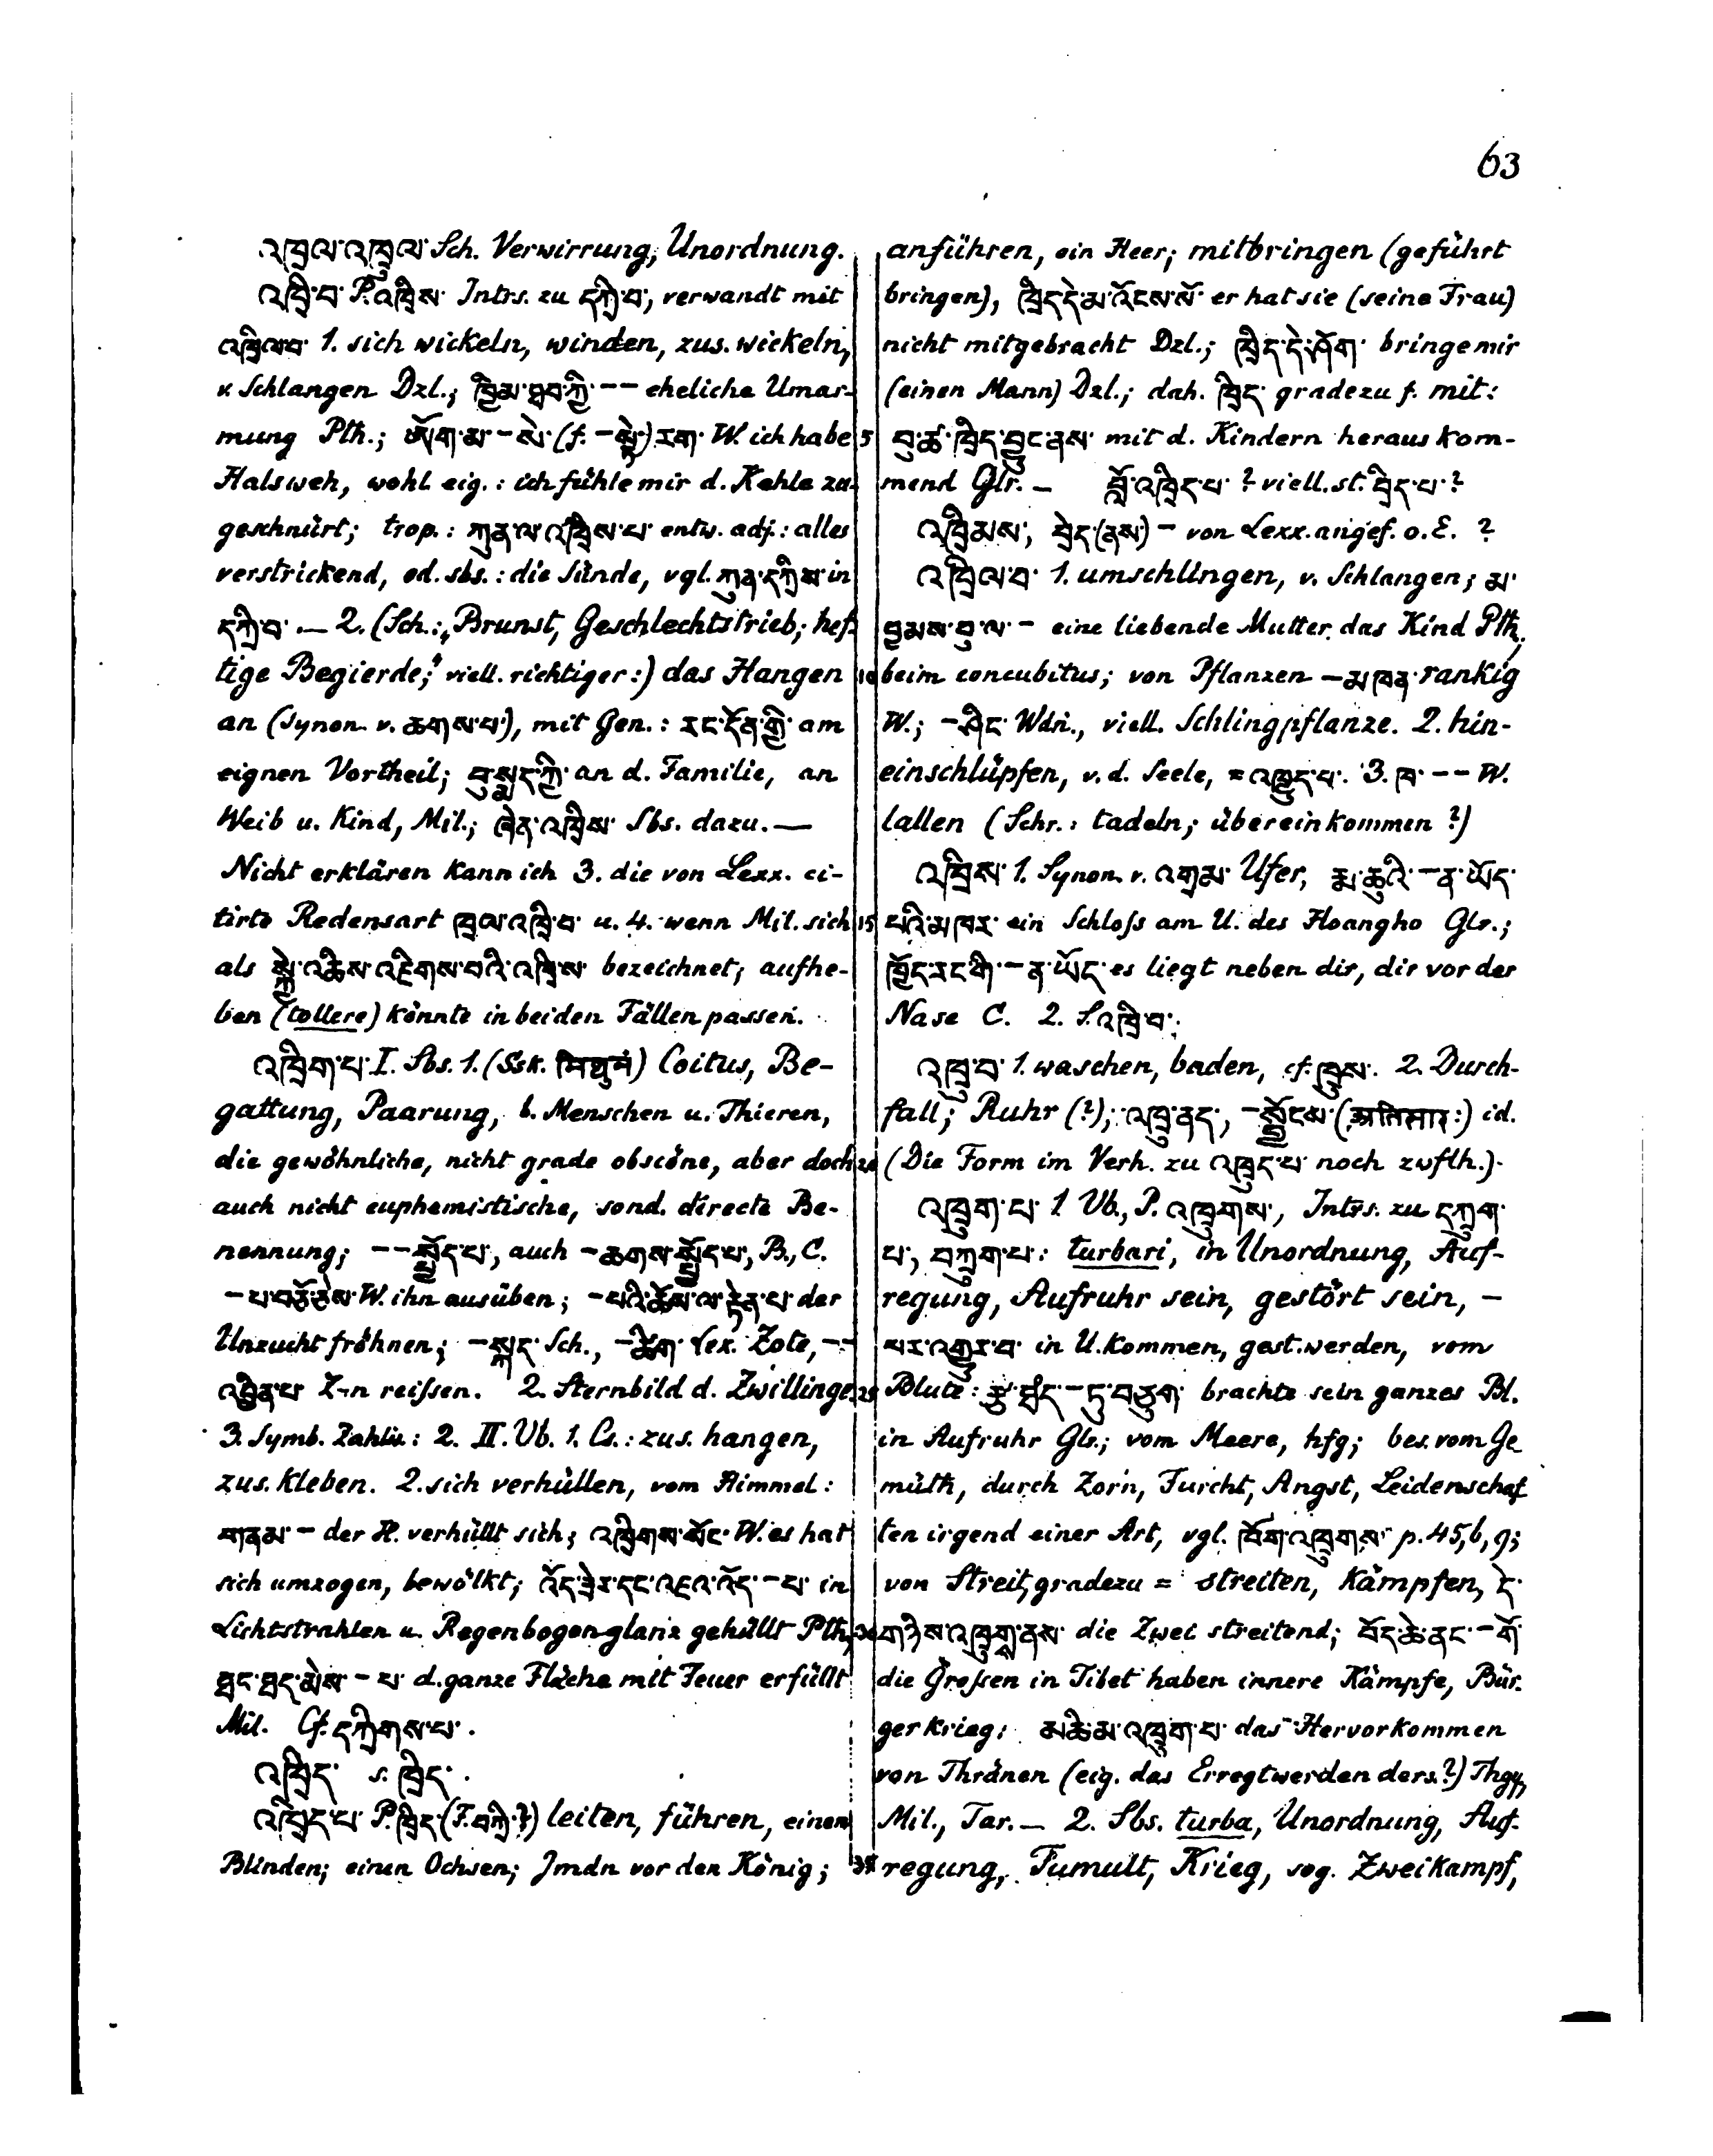 63
འཁྲལ་འཁྲུལ་ Sch. Verwirrung, Unordnung.
འཁྲི་བ་ P. འཁྲིས་ Intrs. zu དཀྲི་བ་, verwandt mit
འཁྲིལ་བ 1. sich wickeln, winden, zus. wickeln,
v. Schlangen Dzl.; ཁྱིམ་ཐབ་ཀྱི་ -- eheliche Umar-
mung Pth.; ཨོག་མ་ - སེ་ (f. - སྟེ་) རག་ W. ich habe 5
Halsweh, wohl eig.: ich fühle mir d. Kehle zu-
geschnürt; trop.: ཀུན་ལ་འཁྲིས་པ་ entw. adj.: alles
verstrickend, od. sbs.: die Sünde, vgl. ཀུན་དཀྲིས་ in
དཀྲི་བ་ — 2. (Sch.: „Brunst, Geschlechtstrieb; hef-
tige Begierde;“ viell. richtiger:) das Hangen 10
an (Synon. v. ཆགས་པ་), mit Gen.: རང་དོན་གྱི་ am
eignen Vortheil; བུ་སྨད་ཀྱི་ an d. Familie, an
Weib u. Kind, Mil.; ཞེན་འཁྲིས་ Sbs. dazu. —
Nicht erklären kann ich 3. die von Lexx. ci-
tirte Redensart ཁྲལ་འཁྲི་བ་ u. 4. wenn Mil. sich 15
als སྐྱེ་འཆིས་འཇིགས་བའི་འཁྲི་ས་ bezeichnet; aufhe-
ben (tollere) könnte in beiden Fällen passen.
འཁྲིག་པ་ I. Sbs. 1. (Ssk. मिथुनं) Coitus, Be-
gattung, Paarung, b. Menschen u. Thieren,
die gewöhnliche, nicht grade obscöne, aber doch 20
auch nicht euphemistische, sond. directe Be-
nennung; -- སྤྱོད་པ་, auch - ཆགས་སྤྱོད་པ་, B., C.
- པ་བཅོ་ཅེས་ W. ihn ausüben; - པའི་ཆོས་ལ་རྟེན་པ་ der
Unzucht fröhnen; - སྐད་ Sch., - ཚིག་ Lex. Zote, --
འབྱིན་པ་ Z-n reißen. 2. Sternbild d. Zwillinge. 25
3. Symb. Zahlw.: 2. II. Vb. 1. Cs.: zus. hangen,
zus. kleben. 2. sich verhüllen, vom Himmel:
གནམ་ - der H. verhüllt sich; འཁྲིགས་སོང་ W. es hat
sich umzogen, bewölkt; འོད་ཟེར་དང་འཇའ་འོད་ - པ་ in
Lichtstrahlen u. Regenbogenglanz gehüllt Pth., 30
ཐང་ཐད་མེས་ - པ་ d. ganze Fläche mit Feuer erfüllt
Mil. Cf. དཀྲིགས་པ་.
འཁྲིད་ s. ཁྲིད་.
འཁྲིད་པ་ P. ཁྲིད་ (F. བཀྲི་?) leiten, führen, einen
Blinden; einen Ochsen; Jmdn vor den König; 35
anführen, ein Heer; mitbringen (geführt
bringen), ཁྲིད་དེ་མ་འོངས་སོ་ er hat sie (seine Frau)
nicht mitgebracht Dzl.; ཁྲིད་དེ་ཤོག་ bringe mir
(einen Mann) Dzl.; dah. ཁྲིད་ gradezu f. mit:
བུ་ཚ་ཁྲིད་བྱུང་ནས་ mit d. Kindern heraus kom-
mend Glr. — བློ་འཁྲིད་པ་? viell. st. བྲིད་པ་?
འཁྲིམས་, བྲེད་(ནས་) - von Lexx. angef. o. E. ?
འཁྲིལ་བ་ 1. umschlingen, v. Schlangen; མ་
བྱམས་བུ་ལ་ - eine liebende Mutter das Kind Pth.,
beim concubitus; von Pflanzen - མཁན་ rankig
W.; - ཤིང་ Wdn., viell. Schlingpflanze. 2. hin-
einschlüpfen, v. d. Seele, = འཁྱུད་པ་. 3. ཁ་ -- W.
lallen (Schr.: tadeln; übereinkommen?)
འཁྲིས་ 1. Synon. v. འགྲམ་ Ufer, རྨ་ཆུའི་ - ན་ཡོད་
པའི་མཁར་ ein Schloß am U. des Hoangho Glr.;
ཁྱོད་རང་གི་ - ན་ཡོད་ es liegt neben dir, dir vor der
Nase C. 2. s. འཁྲི་བ་.
འཁྲུ་བ་ 1. waschen, baden, cf. ཁྲུས་. 2. Durch-
fall; Ruhr (?); འཁྲུ་ནད་, - སྦྱོངས་ (अतिसारः) id.
(Die Form im Verh. zu འཁྲུད་པ་ noch zwflh.).
འཁྲུག་པ་ 1 Vb., P. འཁྲུགས་, Intrs. zu དཀྲུག་
པ་, བཀྲུག་པ་: turbari, in Unordnung, Auf-
regung, Aufruhr sein, gestört sein, -
པར་འགྱུར་བ་ in U. kommen, gest. werden, vom
Blute: རྩ་ཁྲད་ - ཏུ་བཅུག་ brachte sein ganzes Bl.
in Aufruhr Glr.; vom Meere, hfg; bes. vom Ge
müth, durch Zorn, Furcht, Angst, Leidenschaf
ten irgend einer Art, vgl. ཁོག་འཁྲུགས་ p. 45, b, 9;
von Streit, gradezu = streiten, kämpfen, དེ་
གཉིས་འཁྲུག་ནས་ die Zwei streitend; བོད་ཆེ་ནང་ - གོ་
die Großen in Tibet haben innere Kämpfe, Bür-
gerkrieg; མཆི་མ་འཁྲུག་པ་ das Hervorkommen
von Thränen (eig. das Erregtwerden ders.?) Thgy,
Mil., Tar. — 2. Sbs. turba, Unordnung, Auf-
regung, Tumult, Krieg, sog. Zweikampf,